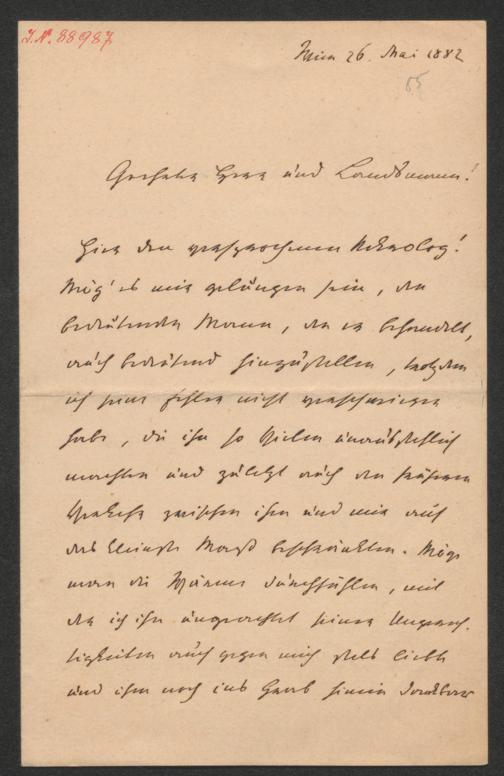 J.N. 88987
Wien 26. Mai 1882
85
Geehrter Herr und Landsmann!
Hier den versprochenen Nekrolog!
Mög' es mir gelungen sein, den
bedeutenden Mann, den er behandelt,
auch bedeutend hinzustellen, trotzdem
ich seine Fehler nicht verschwiegen
habe, die ihn so Vielen unausstehlich
machten und zuletzt auch den früheren
Verkehr zwischen ihm und mir auf
das kleinste Maaß beschränkten. Möge
man die Wärme durchfühlen, mit
der ich ihn ungeachtet seiner Ungerech-
tigkeiten auch gegen mich stets liebte
und ihm noch ins Grab hinein dankbar